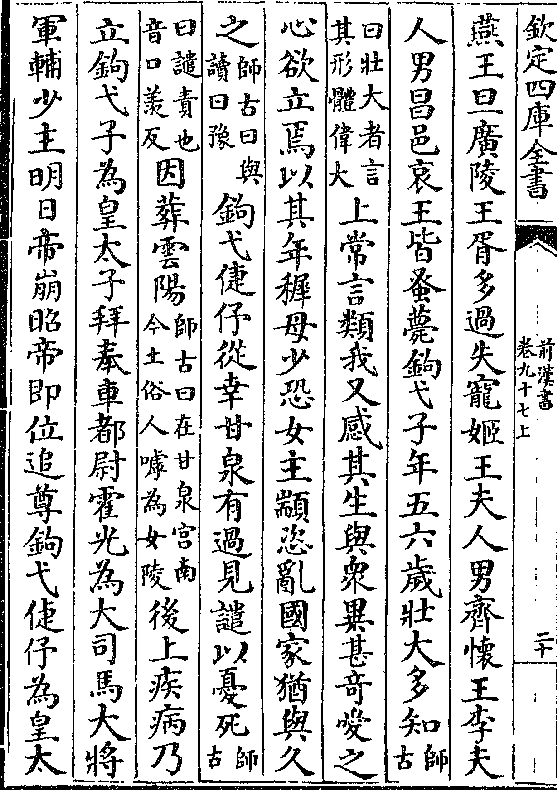 欽定四庫全書
前漢書
卷九十七上
二十
燕王旦廣陵王胥多過失寵姬王夫人男齊懷王李夫
人男昌邑哀王皆蚤薨鉤弋子年五六歲壯大多知師古
曰壯大者言
其形體偉大
上常言類我又感其生與衆異甚奇愛之
心欲立焉以其年穉母少恐女主顓恣亂國家猶與久
之師古曰與
讀曰豫
鉤弋倢伃從幸甘泉有過見譴以憂死師古
曰譴責也
音口羨反
因葬雲陽師古曰在甘泉宫南
今土俗人嘑為女陵
後上疾病乃
立鉤弋子為皇太子拜奉車都尉霍光為大司馬大將
軍輔少主明日帝崩昭帝即位追尊鉤弋倢伃為皇太